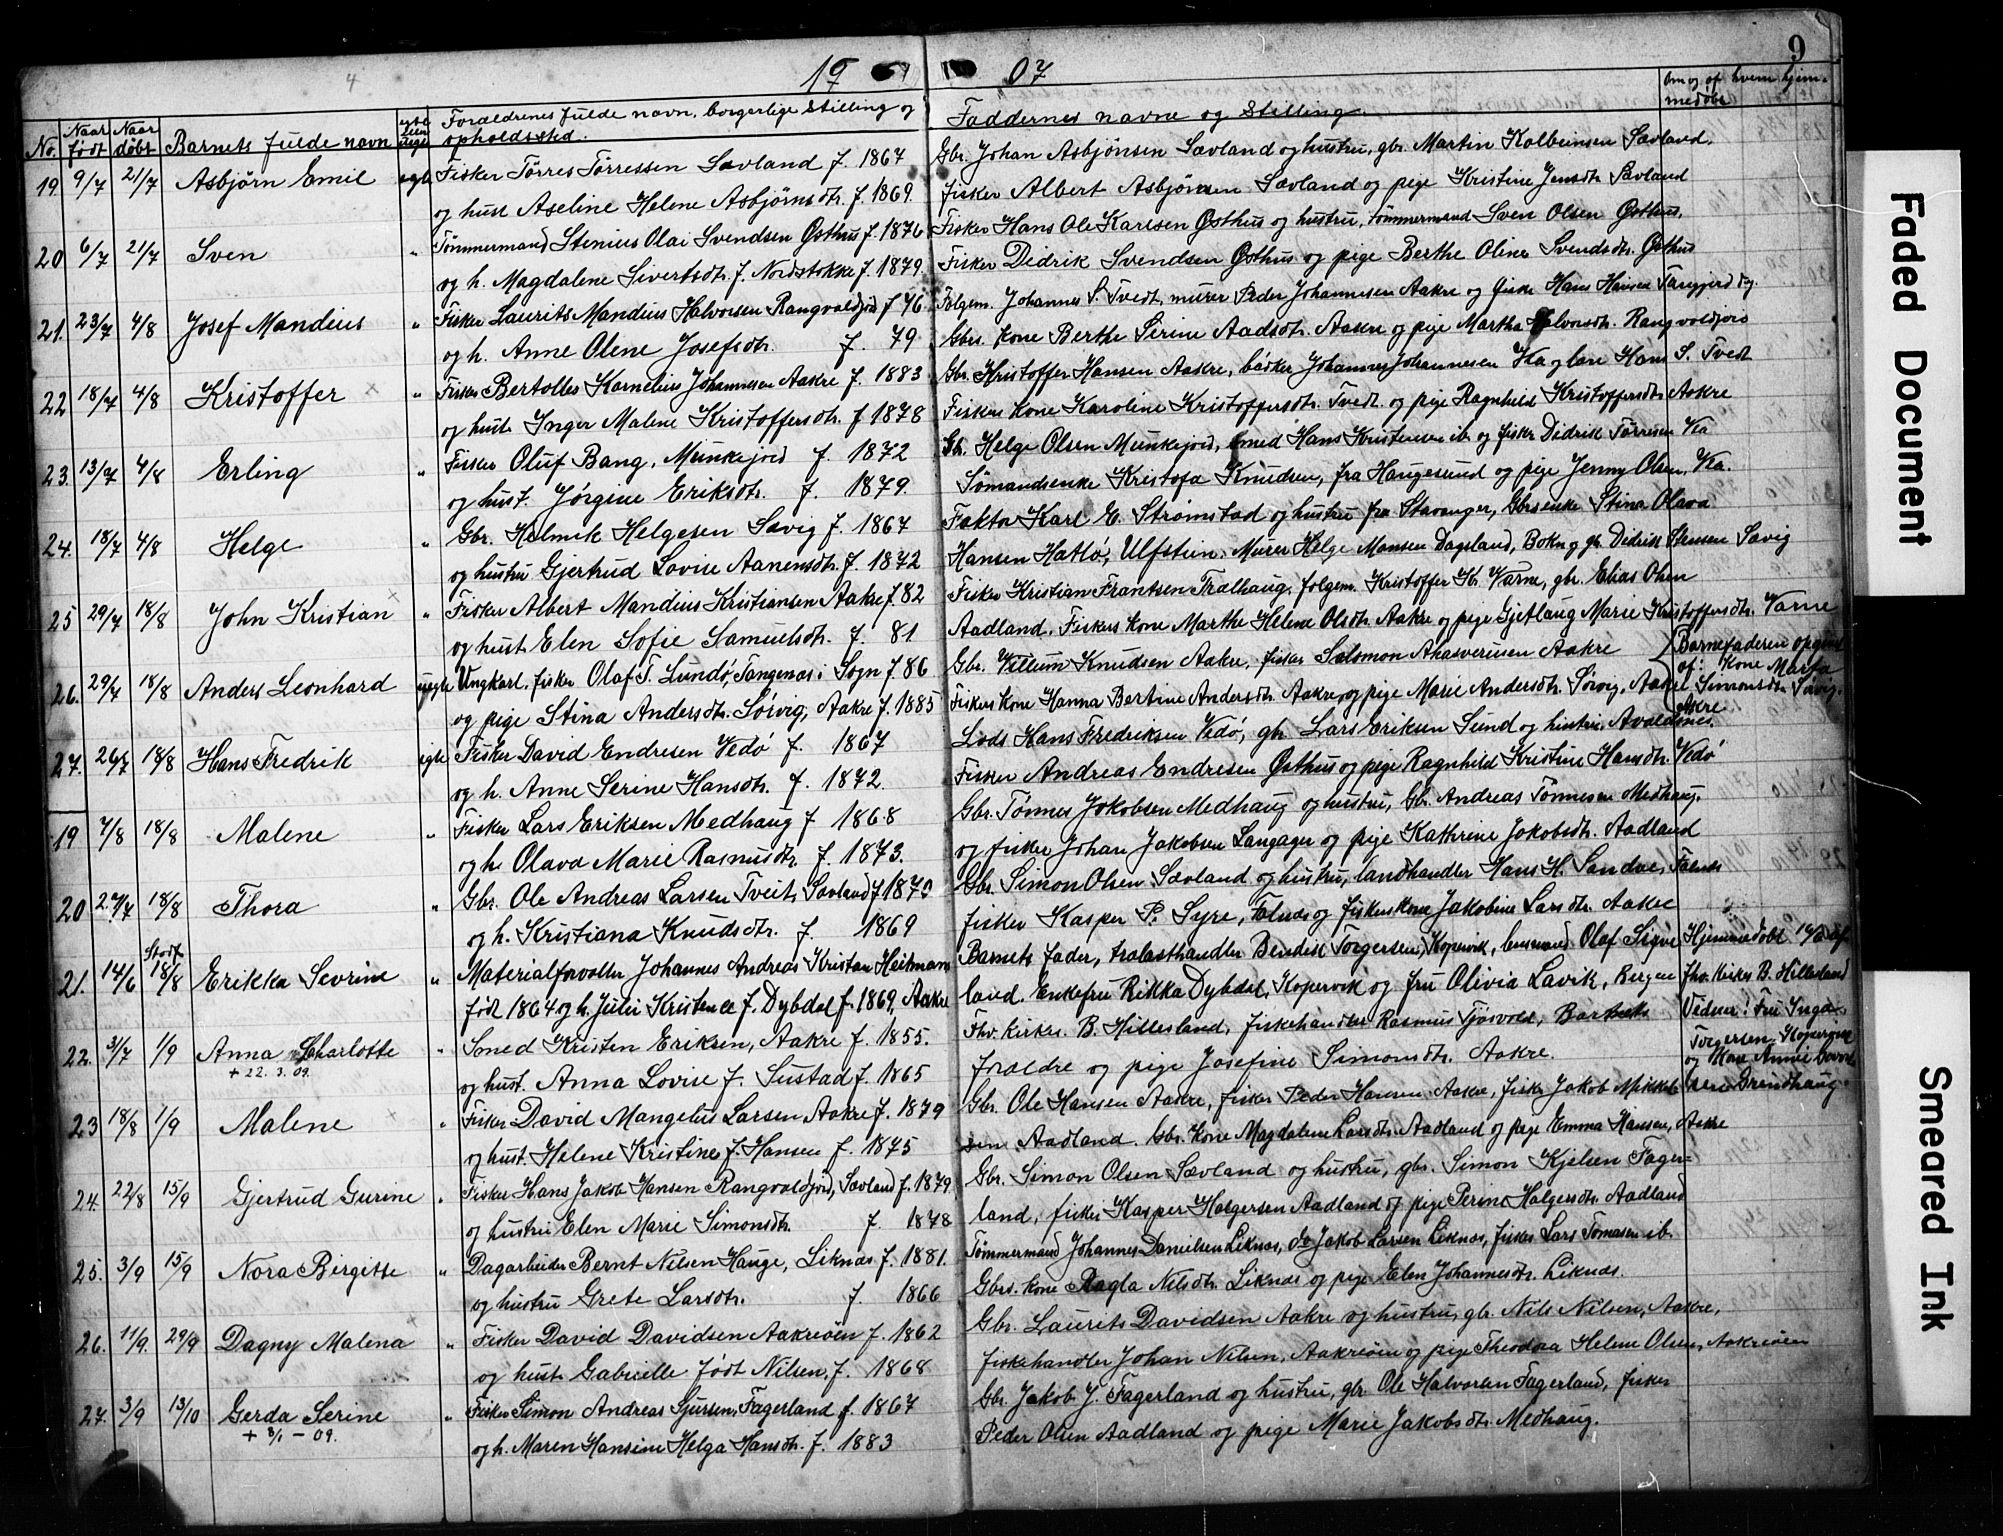 4
19 07
9
No.
Naar født
Naar døbt
Barnets fulde navn
egte eller uegte
Forældrenes fulde navn, borgerlige stilling og opholdssted.
Faddernes navne og stilling.
Om og af hvem hjemmedøbt
19. 9/7 21/7 Asbjørn Emil egte Fisker Tørres Tørressen Sævland f. 1867 Gbr. Johan Asbjönsen Sævland og hustru, gbr. Martin Kolbeinsen Sævland,
og hust Aseline Helene Asbjørnsdtr. f. 1869. fisker Albert Asbjörnsen Sævland og pige Kristine Jensdtr. Sævland
20 6/7 21/7 Sven " Tømmermand Stenius Olai Svendsen Østhus f. 1876 Fisker Hans Ole Karlsen Østhus og hustru, tømmermand Sven Olsen Østhus,
og h. Magdalene Sivertsdtr. f. Nordstokke f. 1879. Fisker Didrik Svendsen Østhus og pige Berthe Oline Svendsdtr. Østhus
21. 23/7 4/8 Josef Mandius " Fisker Laurits Mandius Halvorsen Rangvaldjord f 76 Folgem. Johannes S. Tvedt, murer Peder Johannesen Aakre og fisker Hans Hansen
og h. Anne Olene Josefsdtr. f. 79 Gbrs. kone Berthe Serine Aadsdtr. Aakre og pige Martha Halvorsdtr. Rangvaldjord
22 18/7 4/8 Kristoffer × " Fisker Bertolles Kornelius Johannesen Aakre f. 1883 Gbr. Kristoffer Hansen Aakre, bødker Johannes Johannesen Ka og lærer Hans S. Tvedt
og hust. Inger Malene Kristoffersdtr. f 1878 Fiskers kone Karoline Kristoffersdtr. Tvedt. og pige Ragnhild Kristoffersdtr. Aakre
23. 13/7 4/8 Erling " Fisker Oluf Bang, Munkejord f. 1872 Gbr. Helge Olsen Munkejord, smed Hans Kristensen ib. og fisker Didrik Tørresen Ka
og hust. Jørgine Eriksdtr. f. 1879. Sømandsenke Kristofa Knudsen, fra Haugesund og pige Jenny Olsen, Ka.
24. 18/7 4/8 Helge " Gbr. Helmik Helgesen Sævig f. 1867 Faktor Karl E. Strømstad og hustru fra Stavanger, Gbrsenke Stina Olava
og hustru Gjertrud Lovise Aanensdtr. f. 1872 Hansen Hatlø, Ulfstein. Murer Helge Monsen Dagsland, Bokn og gbr. Didrik Stensen Sævig
25 29/7 18/8 John Kristian × " Fisker Albert Mandius Kristiansen Aakre f. 82 Fisker Kristian Frantsen Tralhaug, folgem. Kristoffer Kr. Varne, gbr. Elias Olsen
og hust Elen Sofie Samuelsdtr. f. 81 Aadland, Fiskers kone Marthe Helene Olsdtr. Aakre og pige Gjetlaug Marie Kristoffersdtr. Varne
26. 29/7 18/8 Anders Leonhard uegte Ungkarl, fisker Olaf T. Lundø, Tangenes i Sogn f. 86 Gbr. Villum Knudsen Aakre, fisker Salomon Ahasverusen Aakre Barnefaderen opgivet
og pige Stina Andersdtr. Sørvig, Aakre f. 1885 Fiskers kone Hanna Bertine Andersdtr. Aakre, og pige Marie Andersdtr. Sørvig, Aakre af: Kone Marta Simonsdtr. Sørvig, Akre
27. 26/7 18/8 Hans Fredrik egte Fisker David Endresen Vedø f. 1867 Lods Hans Fredriksen Vedø, gbr. Lars Eriksen Sund og hustru Avaldsnes.
og h. Anne Serine Hansdtr. f. 1872. Fisker Andreas Endresen Østhus og pige Ragnhild Kristine Hansdtr. Vedø
19 7/8 18/8 Malene " Fisker Lars Eriksen Medhaug f 1868 Gbr. Tønnes Jokobsen Medhaug og hustru, Gbr. Andreas Tønnesen Medhaug,
og h. Olava Marie Rasmusdtr. f. 1873. og fisker Johan Jakobsen Langager og pige Kathrine Jokobsdtr. Aadland
20 27/7 18/8 Thora " Gbr. Ole Andreas Larsen Tveit, Sævland f 1870 Gbr. Simon Olsen Sævland og hustru, landhandler Hans H. Sandve, Falnes
og h. Kristiana Knudsdtr. f. 1869 fisker Kasper P. Syre, Falnes og fiskers kone Jakobine Larsdtr. Aakre
21. 14/6 Stadf. 18/8 Erikka Sevrine " Materialforvalter Johannes Andreas Kristian Heitmann Barnets fader, trælasthandler Bendik Torgersen, Kopervik, lensmand Olaf Signe Hjemmedøbt af
født 1864 og h. Julie Kristence f. Dybdal f. 1869, Aakre land. Enkefru Rikka Dybdal, Kopervik og fru Olivia Lavik, Bergen fhv. kirkes. B. Hillesland
22. 3/7 1/9 Anna Charlotte " Smed Kristen Eriksen, Aakre f. 1855. Fhv. kirkes. B. Hillesland, fiskehandler Rasmus Gjøsvold, Barnets Vidner: Fru Inga
+ 22. 3. 09. og hust. Anna Lovise f. Sustad f. 1865 forældre og pige Josefine Simonsdtr. Aakre. Torgersen Kopervik og Kone Annie
23 18/8 1/9 Malene × " Fisker David Mangelus Larsen Aakre f. 1879 Gbr. Ole Hansen Aakre, fisker Peder Hansen Aakre, fisker Jakob Mikkel- Grindhaug
og hust. Helene Kristine f. Hansen f. 1875 sen Aadland. Gbr. kone Magdalene Larsdtr. Aadland og pige Emma Hansen, Aakre
24. 22/8 15/9 Gjertrud Gurine " Fisker Hans Jakob Hansen Rangvaldjord, Sævland f. 1879 Gbr. Simon Olsen Sævland og hustru, gbr. Simon Kjelsen Fager=
og hustru Elen Marie Simonsdtr. f. 1878 land, fisker Kasper Holgersen Aadland og pige Perine Holgersdtr. Aadland
25. 3/9 15/9 Nora Birgitte " Dagarbeider Bernt Nilsen Hauge, Liknes f. 1881. Tømmermand Johannes Danielsen Liknes, do Jakob Larsen Liknes, fisker Lars Tomasen ib.
og hustru Grete Larsdtr. f. 1866 Gbrs. kone Ragla Nilsdtr. Liknes og pige Elen Johannesdtr. Liknes.
26. 11/9. 29/9 Dagny Malena × " Fisker David Davidsen Aakreøen f. 1862 Gbr. Laurits Davidsen Aakre og hustru, gbr. Nils Nilsen, Aakre,
og hust Gabrielle født Nilsen, f. 1868 fiskehandler Johan Nilsen, Aakreøen og pige Theodora Helene Olsen, Aakreøen
27. 3/9 13/10 Gerda Serine " Fisker Simon Andreas Sjursen, Fagerland f. 1867 Gbr. Jakob J. Fagerland og hustru, gbr. Ole Halvorsen Fagerland, fisker
+ 3/1 - 09. og h. Maren Hansine Helga Hansdtr. f. 1883 Peder Olsen Aadland og pige Marie Jakobsdtr. Medhaug.
Faded Document
Smeared Ink